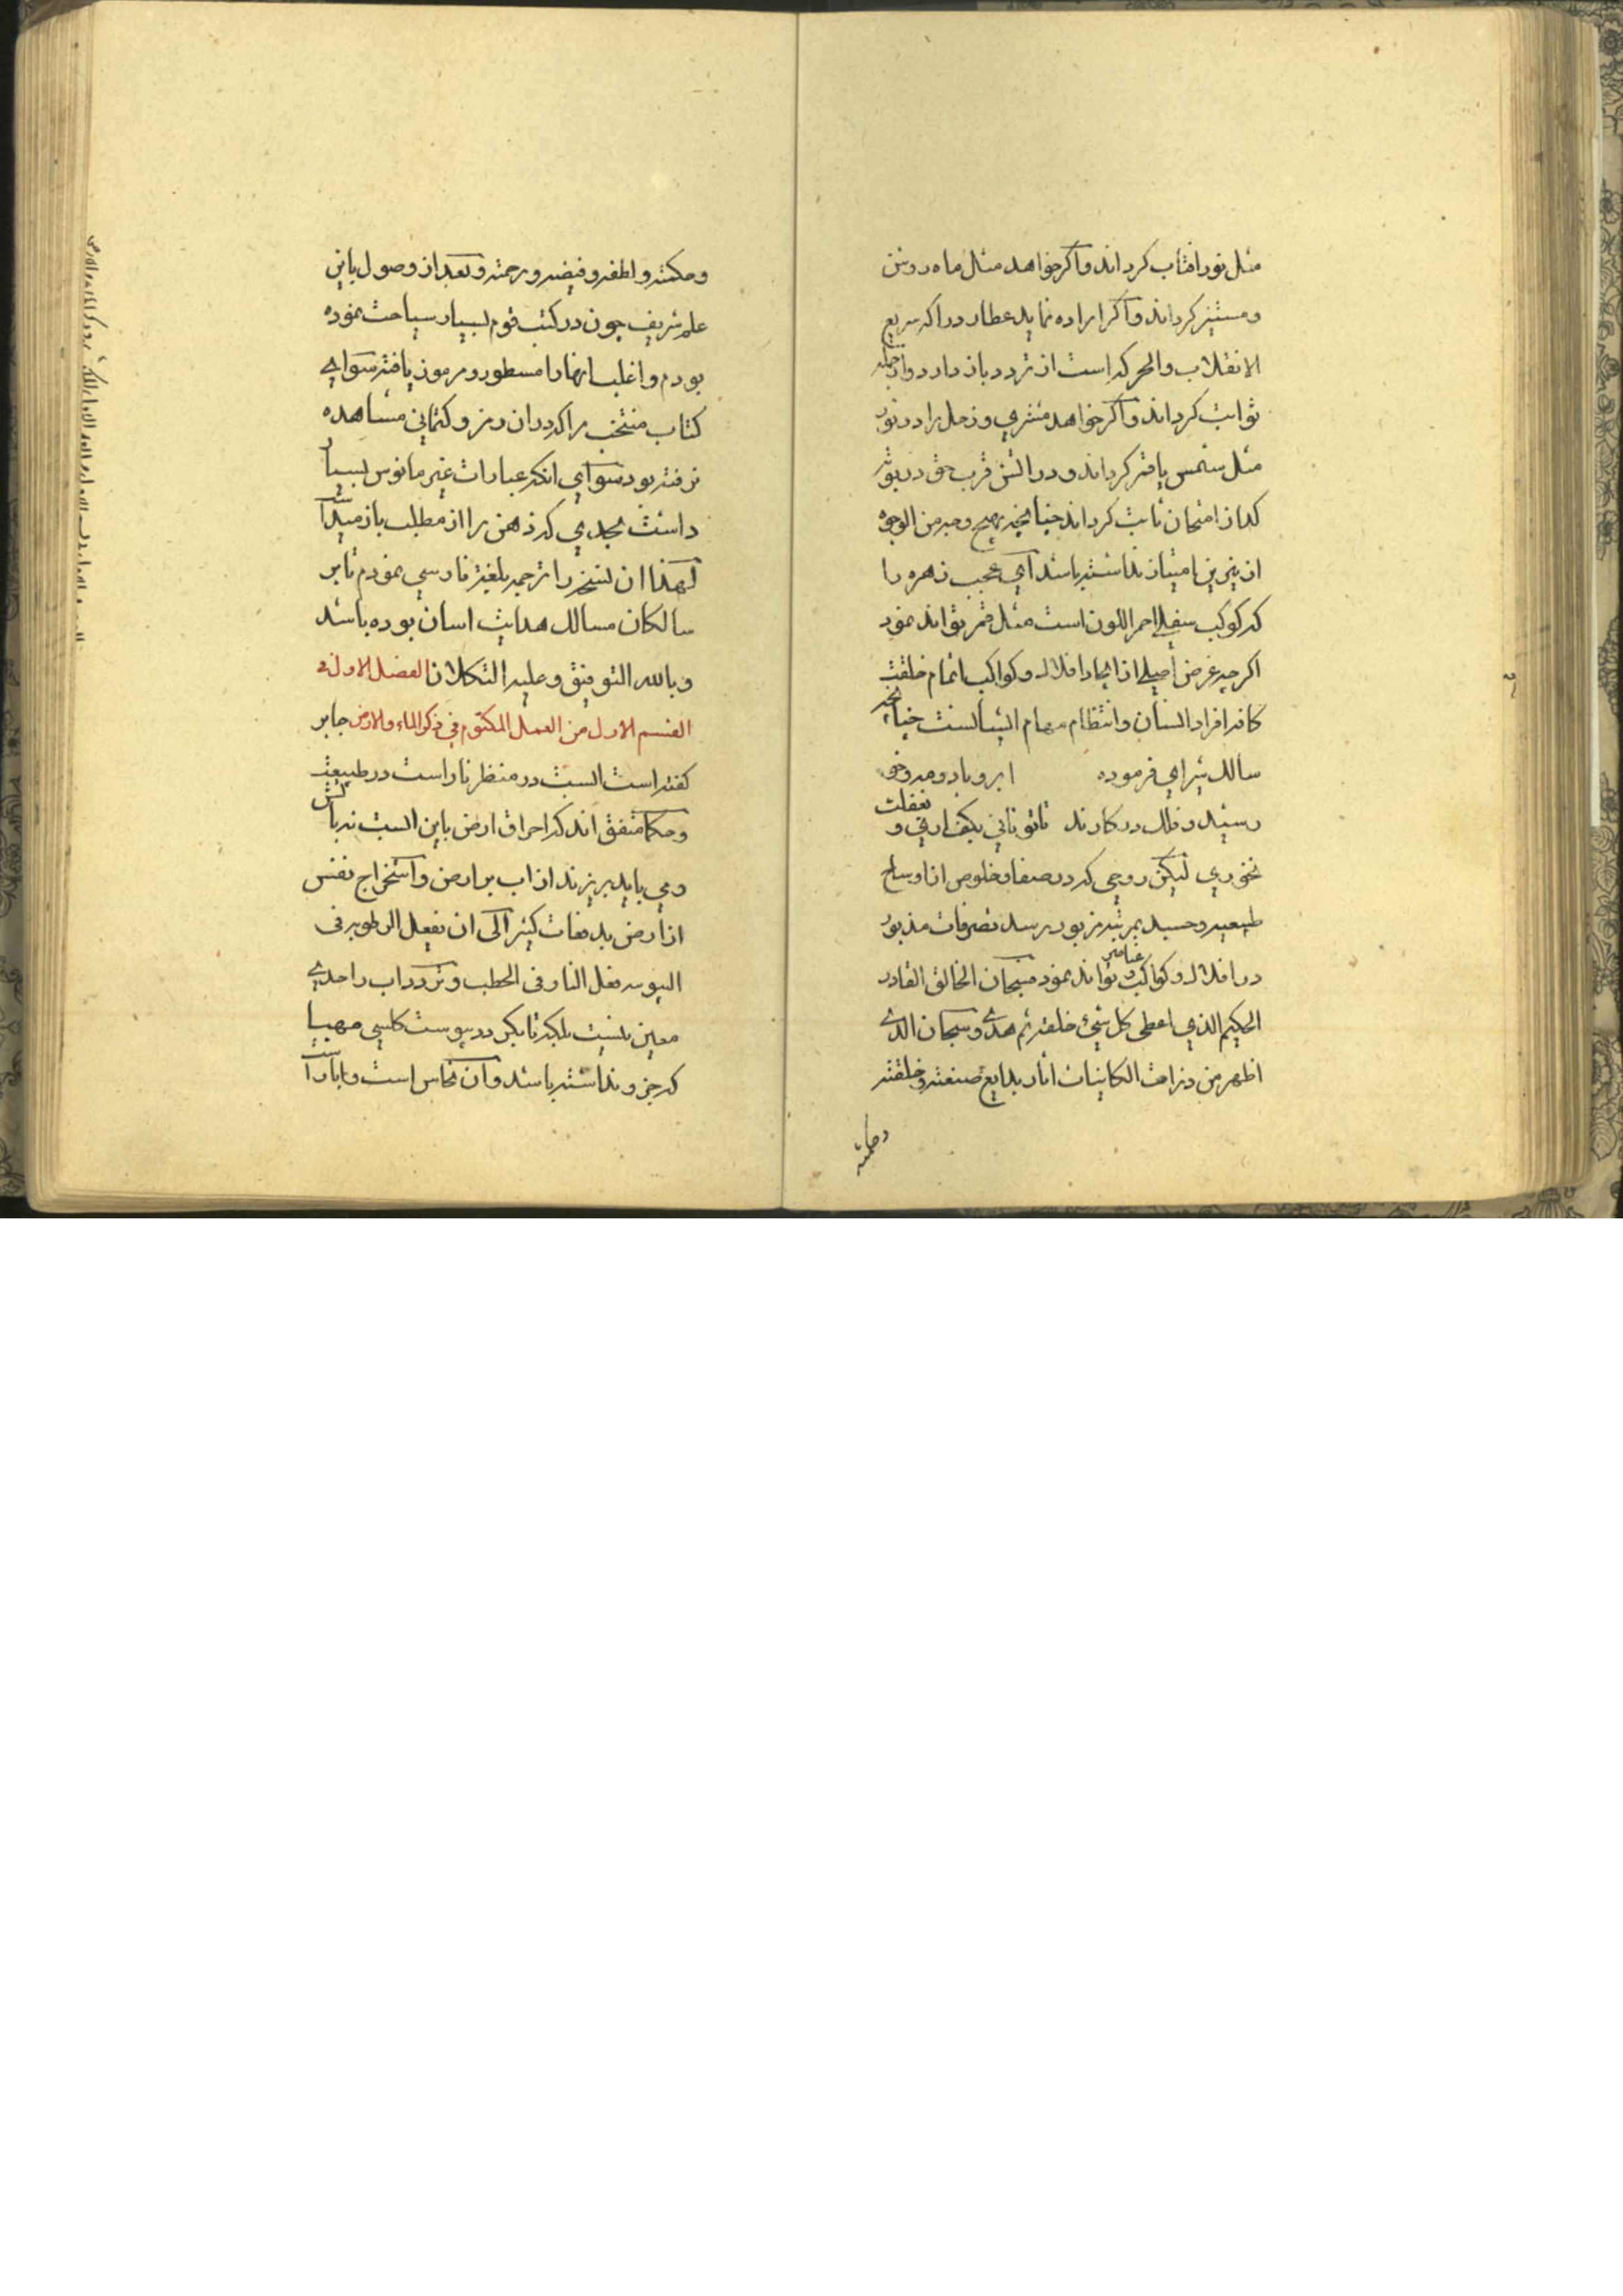 مثل نور افتاب کرداند و اکر خواهد مثل ماه روشن
و مستنیر کرداند و اکر اراده نماید عطارد را که سریع
الانقلاب و الحرکه است از تردد باز دارد و از جمله
ثوابت کرداند و اکر خواهد مشتری و زحل را در نور
مثل شمس یافته کرداند و در اتش قرب حق در بوته
کداز امتحان ثابت کرداند چنانچه بهیچ وجه من الوجوه
از نیرین امتیاز نداشته باشد ای عجب زهره را
که کوکب سفلی احمر اللون است مثل قمر تواند نمود
اکرچه غرض اصلی از ایجاد افلاک و کواکب اتمام خلقت
کافه افراد انسان و انتظام مهام ایشانست چنانچه
سالک شیرازی فرموده ابر و باد و مه و خو
رشید و فلک در کارند تا تو نانی بکف اری و بغفلت
نخوری لیکن روحی که در صفا و خلوص از اوساخ
طبیعیه و جسدیه بمرتبه مزبور برسد تصرفات مذبور
در افلاک و کواکب و عناصر تواند نمود فسبحان الخالق القادر
الحکیم الذی اعطی کل شیء خلقه ثم هدی و سبحان الذی
اظهر من مزاهت الکاینات اثار بدایع صنعته و خلقته
وحکمته
وحکمته و لطفه و فیضه و رحمته و بعد از وصول باین
علم شریف چون در کتب قوم بسیار سیاحت نموده
بودم و اغلب انها را مسطور و مرموز یافته سوای
کتاب منتخب را که در ان رمز و کتمانی مشاهده
نرفته بود سوای انکه عبارات غیر مانوس بسیار
داشت بحدی که ذهن را از مطلب باز میداشت
لهذا ان نسخه را ترجمه بلغة فارسی نمودم تا بر
سالکان مسالک هدایت اسان بوده باشد
و بالله التوفیق و علیه التکلان الفصل الاول فی
القسم الاول من العمل المکتوم فی ذکر الماء والارض جابر
کفته است ابیست در منظر ناراست در طبیعت
و حکما متفق اند که احراق ارض باین ابست نه باتش
و می باید بریزند از اب بر ارض و استخراج نفس
از ارض بدفعات کثیر الی ان یفعل الرطوبه فی
الیبوسه فعل النار فی الحطب و تردد اب را حدی
معین نیست بلکه تا بکیرد یبوست کلسی مهیا
که جزو نداشته باشد و ان نحاس است و ابار است